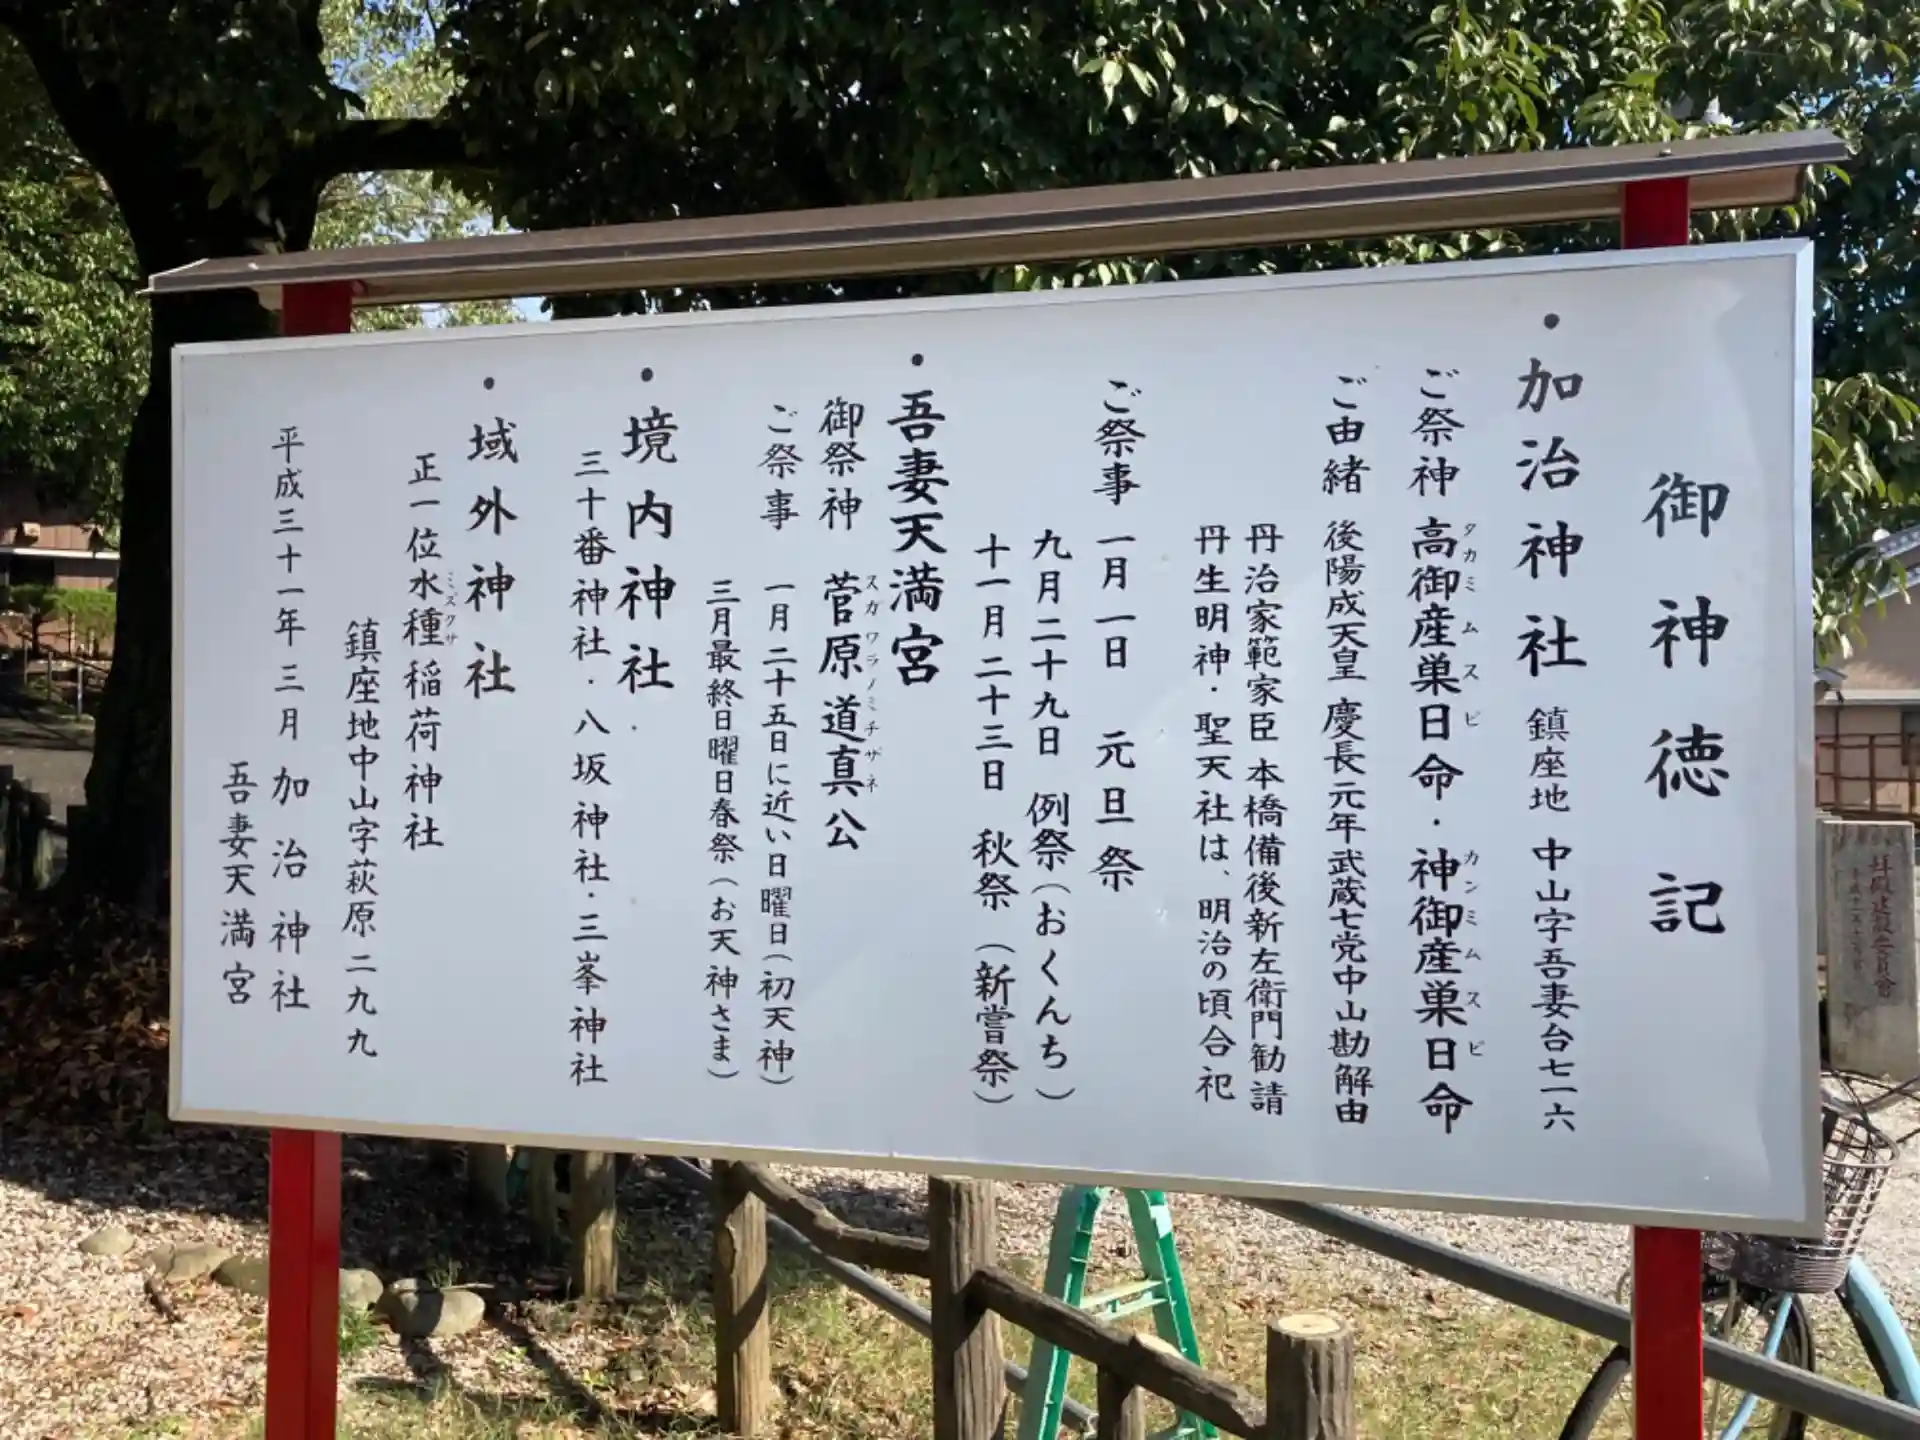 御神徳記
・加治神社 鎮座地 中山字吾妻台七一六
ご祭神 高御産巣日命・神御産巣日命
タカミムスビ カンミムスビ
ご由緒 後陽成天皇 慶長元年武蔵七党中山勘解由
丹治家範家臣 本橋備後新左衛門勧請
丹生明神・聖天社は、明治の頃合祀
ご祭事 一月一日 元旦祭
九月二十九日 例祭(おくんち)
十一月二十三日 秋祭(新嘗祭)
・吾妻天満宮
御祭神 菅原道真公
スガワラノミチザネ
ご祭事 一月二十五日に近い日曜日(初天神)
三月最終日曜日春祭(お天神さま)
・境内神社
三十番神社・八坂神社・三峯神社
・域外神社
正一位水種稲荷神社
ミズクサ
鎮座地中山字萩原二九九
平成三十一年三月 加治神社
吾妻天満宮
拝殿建設委員會